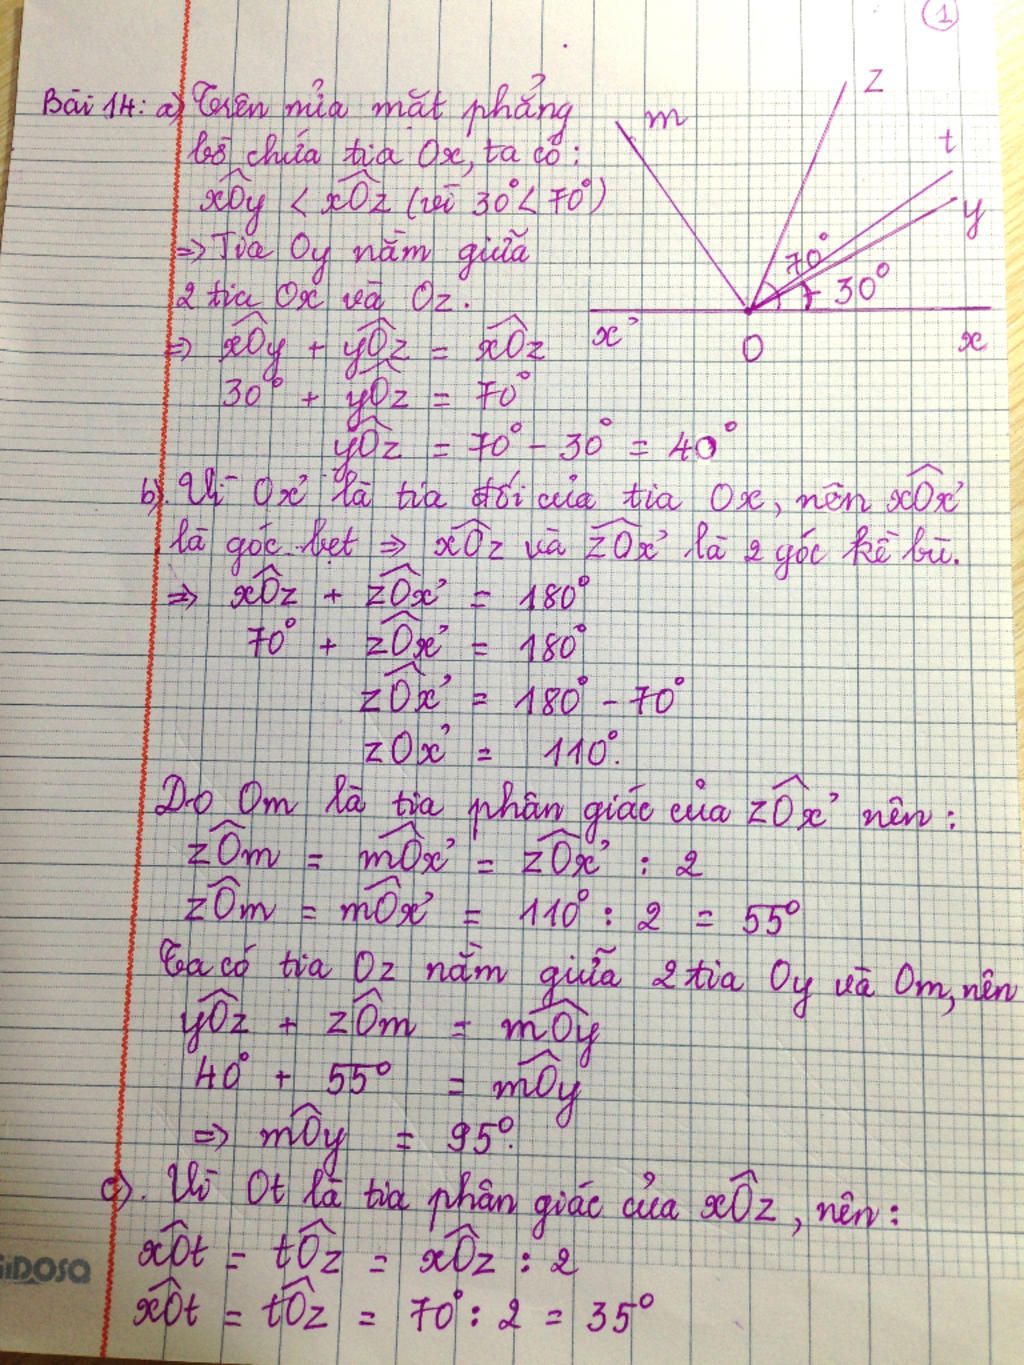 1
Bài 14: a) Trên nửa mặt phẳng
bờ chứa tia Ox, ta có:
xÔy < xÔz (vì 30° < 70°)
=> Tia Oy nằm giữa
2 tia Ox và Oz.
=> xÔy + yÔz = xÔz
30° + yÔz = 70°
yÔz = 70° - 30° = 40°
m
z
t
y
70°
30°
x'
O
x
b). Vì Ox' là tia đối của tia Ox, nên xÔx'
là góc bẹt => xÔz và zÔx' là 2 góc kề bù.
=> xÔz + zÔx' = 180°
70° + zÔx' = 180°
zÔx' = 180° - 70°
zOx' = 110°.
Do Om là tia phân giác của zÔx' nên:
zÔm = mÔx' = zÔx' : 2
zÔm = mÔx' = 110° : 2 = 55°
Ta có tia Oz nằm giữa 2 tia Oy và Om, nên
yÔz + zÔm = mÔy
40° + 55° = mÔy
=> mÔy = 95°.
c). Vì Ot là tia phân giác của xÔz, nên:
xÔt = tÔz = xÔz : 2
xÔt = tÔz = 70° : 2 = 35°
GIDOSA